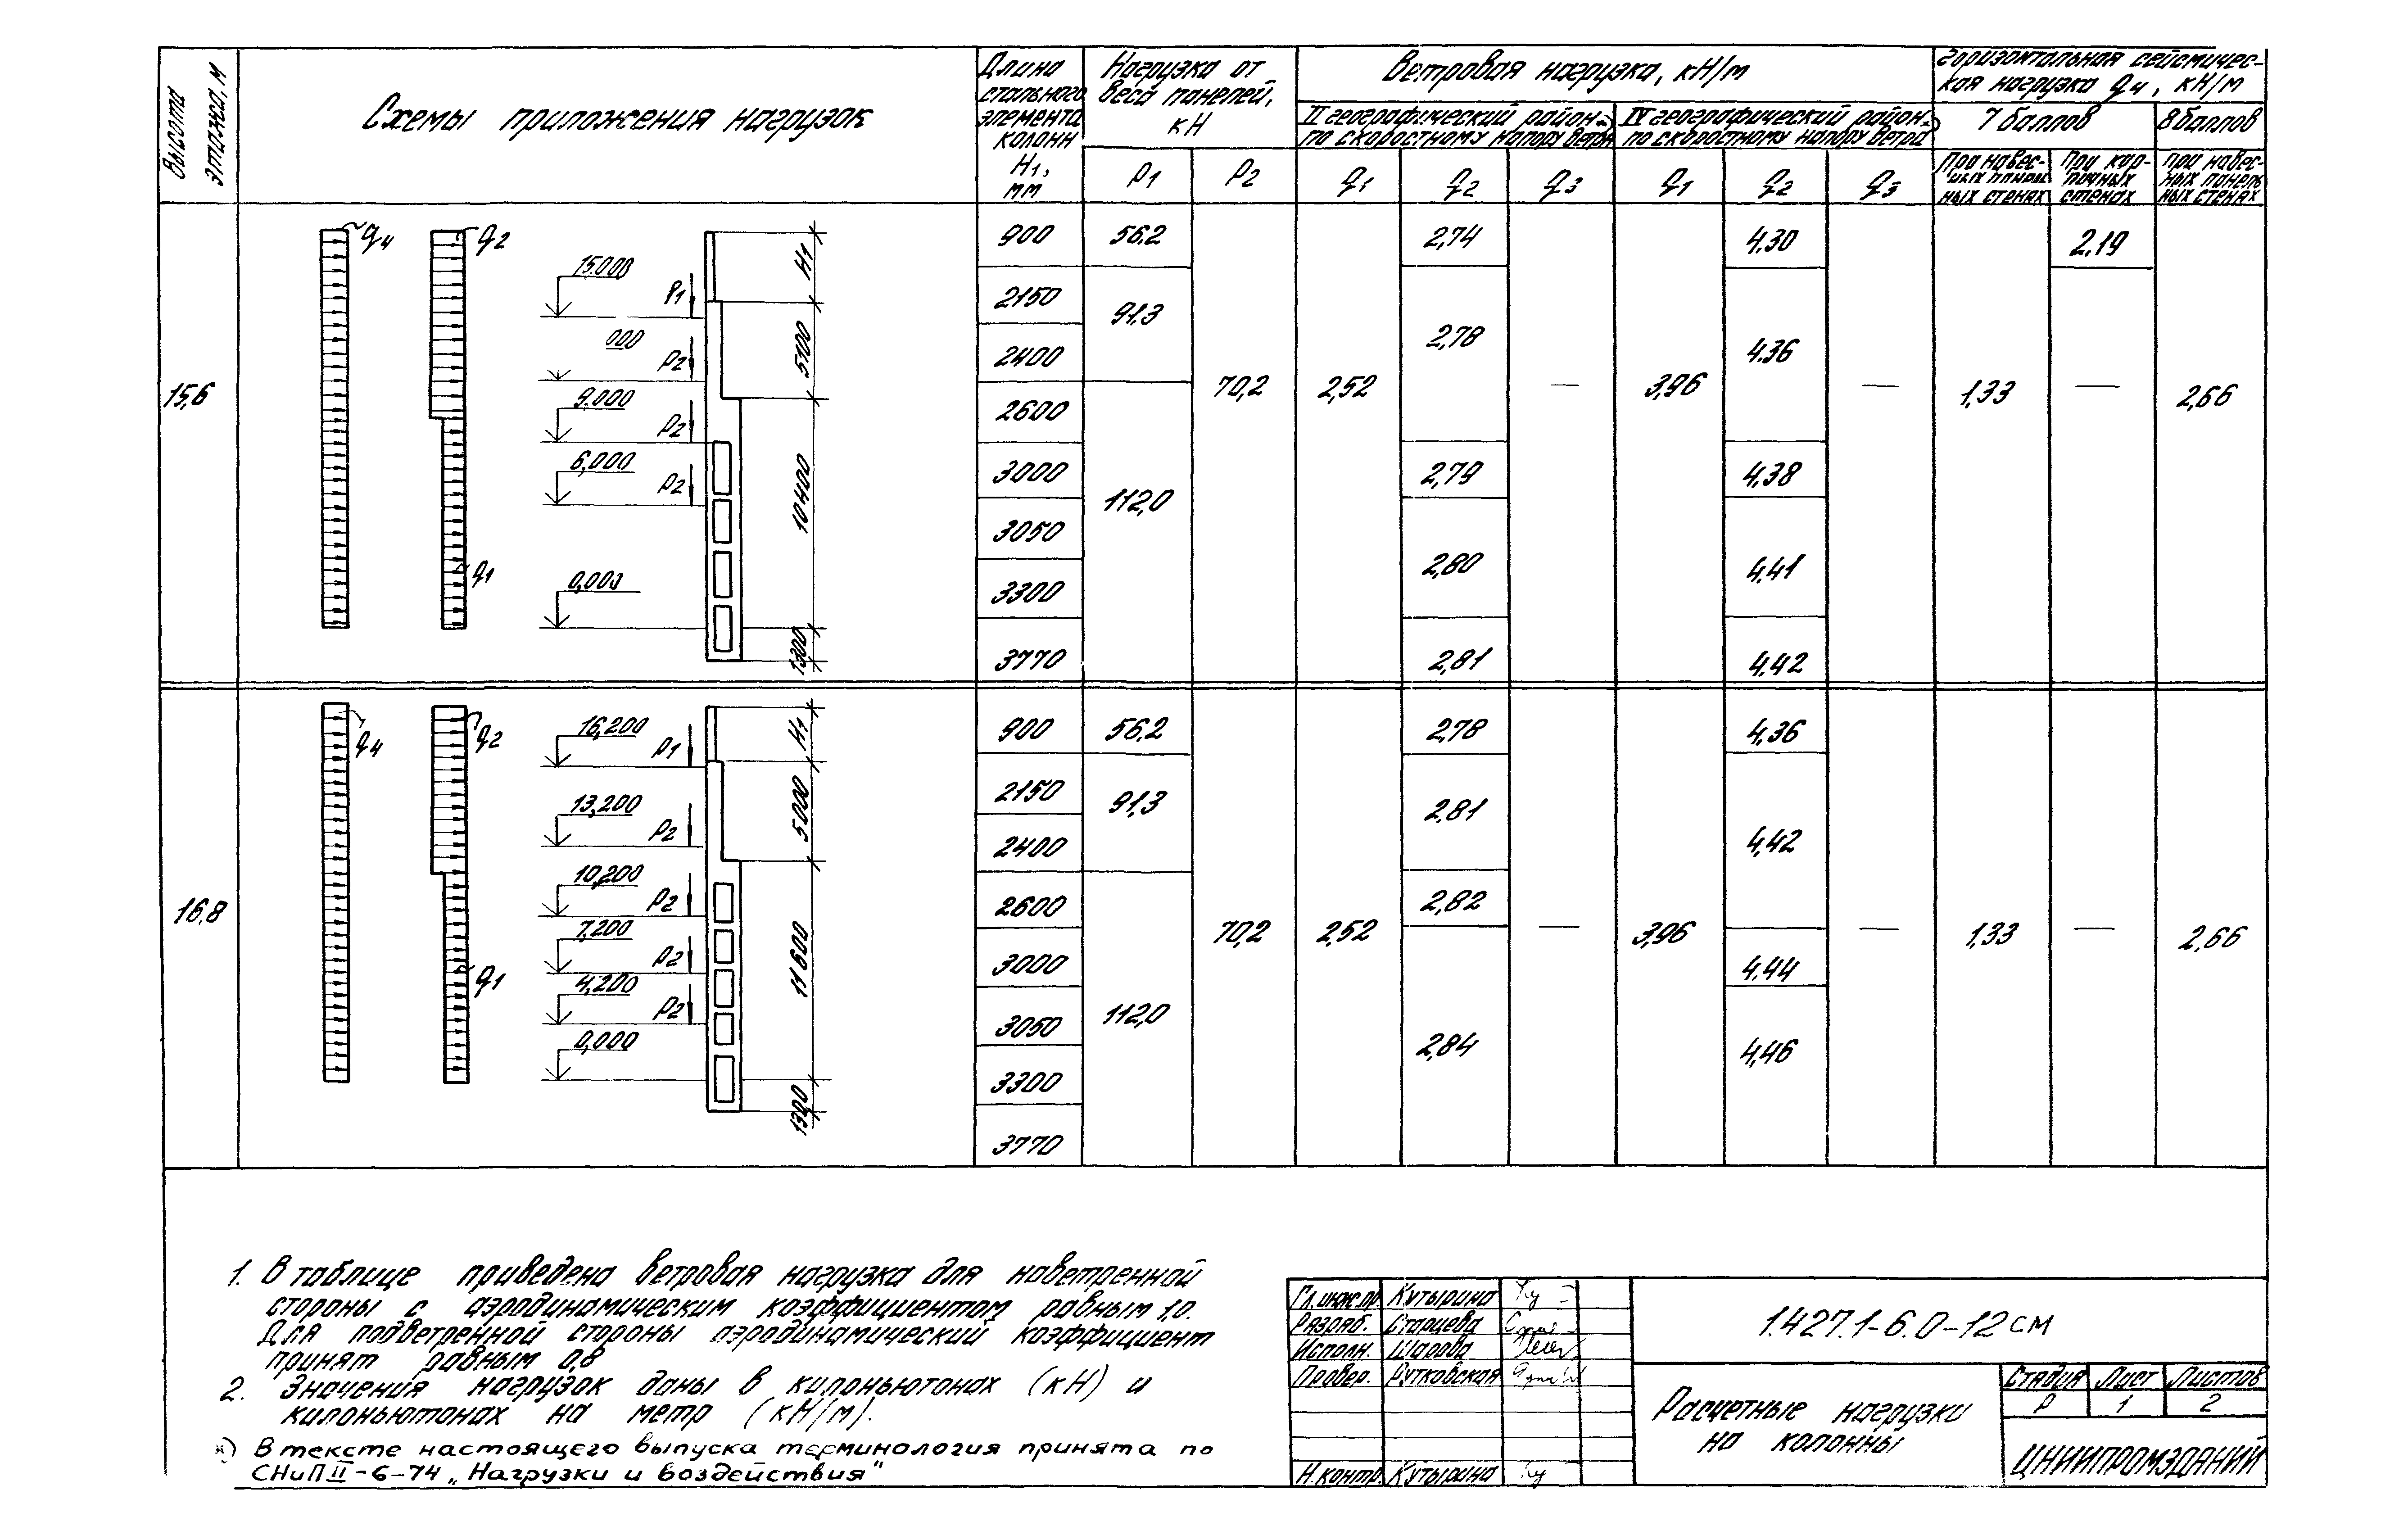 Высота этажа, м
Схемы приложения нагрузок
Длина
стального
элемента
колонн
H1,
мм
Нагрузка от
веса панелей,
кН
P1
P2
Ветровая нагрузка, кН/м
II географический район*)
по скоростному напору ветра
q1
q2
q3
IV географический район*)
по скоростному напору ветра
q1
q2
q3
Горизонтальная сейсмичес-
кая нагрузка q4, кН/м
7 баллов
8 баллов
При навес-
ных панель
ных стенах
При кир-
пичных
стенах
При навес-
ных панель
ных стенах
15,6
q4
q2
q1
15.000
000
9.000
6,000
0,000
P1
P2
P2
P2
H1
5100
10400
1300
900
2150
2400
2600
3000
3050
3300
3770
56.2
91,3
112,0
70,2
2,52
2,74
2,78
2,79
2,80
2,81
—
3,96
4.30
4.36
4.38
4.41
4.42
—
1,33
2,19
—
2,66
16,8
q4
q2
q1
16,200
13,200
10,200
7,200
4,200
0,000
P1
P2
P2
P2
P2
H1
5000
11600
1300
900
2150
2400
2600
3000
3050
3300
3770
56.2
91,3
112,0
70,2
2,52
2,78
2,81
2,82
2,84
—
3,96
4,36
4,42
4.44
4,46
—
1,33
—
2,66
1. В таблице приведена ветровая нагрузка для наветренной
стороны с аэродинамическим коэффициентом равным 1,0.
Для подветренной стороны аэродинамический коэффициент
принят равным 0,8
2. Значения нагрузок даны в килоньютонах (кН) и
килоньютонах на метр (кН/м).
*) В тексте настоящего выпуска терминология принята по
СНиП II-6-74 „Нагрузки и воздействия"
Гл.инж.пр. Кутырина
Разраб. Старцева
Исполн. Шарова
Провер. Рутковская
Н.контр. Кутырина
1.427.1-6.0-12 см
Расчетные нагрузки
на колонны
Стадия Лист Листов
Р 1 2
ЦНИИПРОМЗДАНИЙ